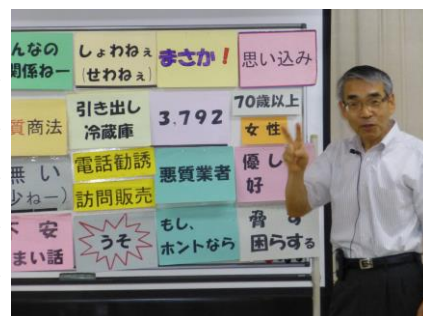 んなの
関係ねー
しょわねぇ
(せわねぇ)
まさか!
思い込み
質商法
引き出し
冷蔵庫
3.792
70歳以上
女性
無い
少ねー)
電話勧誘
訪問販売
悪質業者
優し
好
不安
まい話
うそ
もし、
ホントなら
脅す
困らする